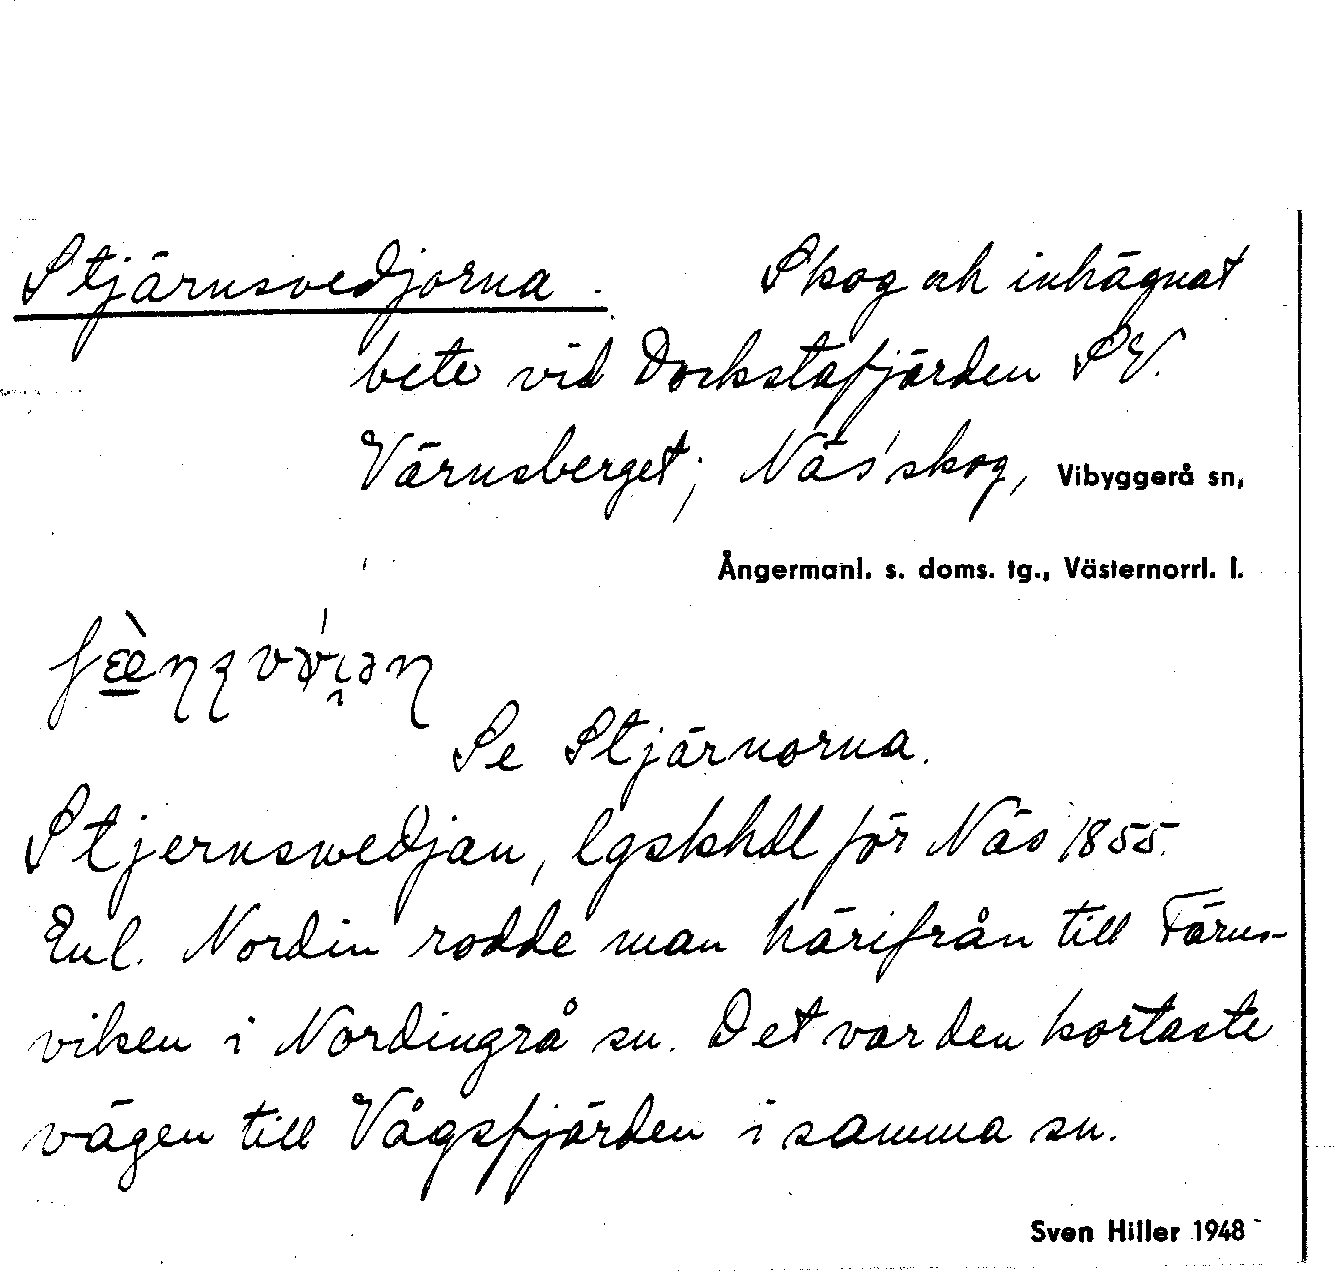 Stjärnsvedjorna. Skog och inhägnat
bete vid Dockstafjärden SV.
Värnsberget; Näs' skog, Vibyggerå sn,
Ångermanl. s. doms. tg., Västernorrl. l.
Se Stjärnorna.
Stjernswedjan, lgskhdl för Näs 1855.
Enl. Nordin rodde man härifrån till Färns-
viken i Nordingrå sn. Det var den kortaste
vägen till Vågsfjärden i samma sn.
Sven Hiller 1948